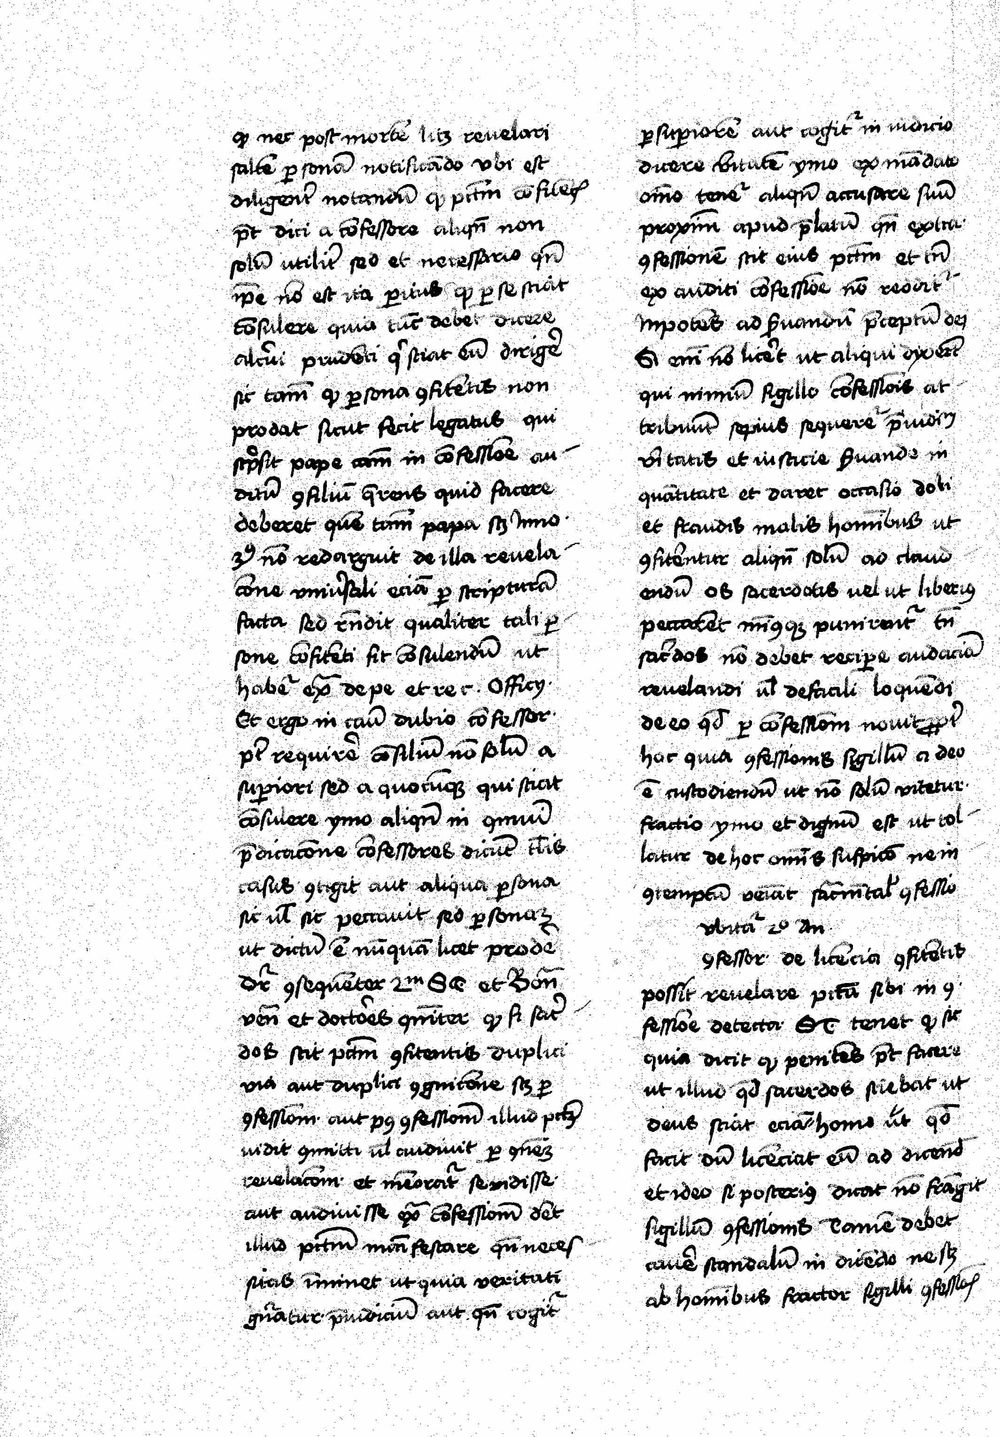 qꝫ nec post mortē litꝫ reuelari
saltē ꝑsonā notificādo vbi est
diligent͛ notandū ꝙ pctm̄ cōfitētis
pt̄ dici a cōfessore aliqn̄ non
solū utilit͛ sed et necessario qn̄
ipē nō est ita ꝑitus ꝙ ꝑ se sciat
cōsulere quia tūc debet dicere
alicui prudēti qͥ sciat eū dirigē
sic tamē ꝙ ꝑsona ꝯfitētis non
prodat͛ sicut fecit legatus qui
scpͥsit pape cām in cōfessiōe au-
ditū ꝯsiliū q̄rens quid facere
deberet quē tamē papa scꝫ Inno.
3ꝰ nō redarguit de illa reuela-
cōne vniuersali eciā ꝑ scripturā
facta sed rn̄dit qualiter tali ꝑ-
sone cōfitēti sit cōsulendū ut
habet͛ ex͞ de pe et re c. Officij.
Et ergo in casu dubio cōfessor
pt̄ requirē cōsiliū nō solū a
suꝑiori sed a quocūqꝫ qui sciat
cōsulere ymo aliqn̄ in ꝯmuni
p̄dicacōne cōfessores dicūt tales
casus ꝯtigit aut aliqua ꝑsona
sic ul̄ sic peccauit sed ꝑsonaꝫ
ut dictū ē nūquā licet prodē
Dr̄ ꝯsequenter 2m SC et Bon̄
ven̄ et doctōes qm̄iter ꝙ si sacer-
dos scit pctm̄ ꝯfitentis duplici
via aut duplici ꝯgnicōne scꝫ ꝑ
ꝯfessionē aut pꝯ ꝯfessionē illud pctm̄
uidit ꝯmitti ul̄ audiuit ꝑ ꝯmunē
reuelacōem et memorat͛ se uidisse
aut audiuisse ex͞ cōfessionē debet
illud pctm̄ manifestare qn̄ neces-
sitas īminet ut quia veritati
gn̄atur p̄iudiciū aut qn̄ cogit͛
ꝑ suꝑiorē aut cogit͛ in iudicio
dicere v̄itatē ymo ex mādato
om̄o tenet͛ aliqn̄ accusare suū
proximū apud p̄latū qn̄ extra
ꝯfessionē scit eius pctm̄ et tn̄
ex auditi cōfessiōe nō reddit͛
Inpotēs ad s̄uandū p̄ceptū dei
Si em̄ nō licēt ut aliqui dixerūt
qui nimiū sigillo cōfessiōis at-
tribuūt sepius sequeret͛ p̄iudiciū
v̄itatis et iusticie s̄uande in
quātitate et daret occasio doli
et fraudis malis homībus ut
ꝯfitentur aliqn̄ solū ad claud-
endū os sacerdotis uel ut liberiꝰ
peccarēt mīꝯqꝫ punirent͛ tn̄
sac͛dos nō debet recipe audaciā
reuelandi ul̄ defacili loquēdi
de eo qd̄ ꝑ cōfessionem nouit ꝓpt͛
hoc quia ꝯfessionis sigillū adeo
ē custodiendū ut nō solū vitetur
fractio ymo et dignū est ut tol-
latur de hoc omīs suspicō ne in
ꝯtemptū veniat sacm̄tal͛ ꝯfessio
vbitat͛ 2o An
ꝯfessor de licēcia ꝯfitētis
possit reuelare pctā sibi in ꝯ-
fessiōe detecta SC tenet ꝙ sic
quia dicit ꝙ penitēs pt̄ facere
ut illud qd̄ sacerdos sciebat ut
deus sciat eciā homo ut qd̄
facit dū licēciat eū ad dicend̄
et ideo si posteriꝰ dicat nō frāgit
sigillū ꝯfessionis Tamē debet
cauē scandalū in dicēdo ne scꝫ
ab homībus fractor sigilli ꝯfessiōis